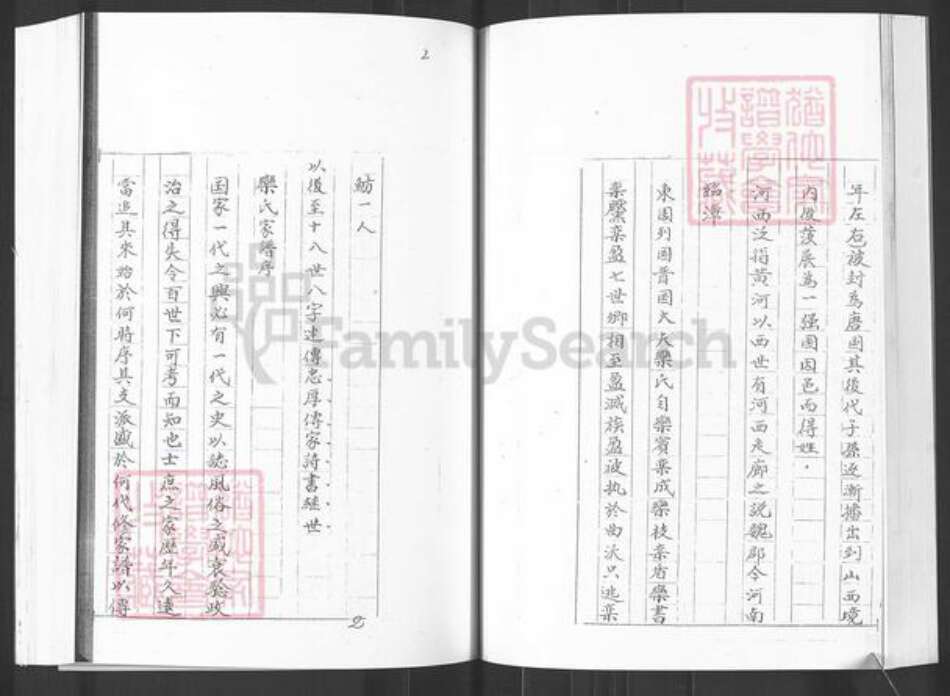 年左右被封為唐国其後代子孫逐漸播出到山西境
内後发展為一强国因邑而得姓.
河西泛指黄河以西世有河西走廊之説魏郡今河南
臨漳
東周列国晋国大夫欒氏自欒賓欒成欒枝欒盾欒書
欒黶欒盈七世卿相至盈滅族盈被执於曲沃只逃欒
魴一人
以後至十八世八字逑傳忠厚傳家詩書經世
欒氏家譜序
国家一代之興必有一代之史以誌風俗之盛衰
政
治之得失令百世下可考而知也士庶之家歷年久遠
當追其來始於何時序其支派盛於何代修家譜以傳
2
2
FamilySearch